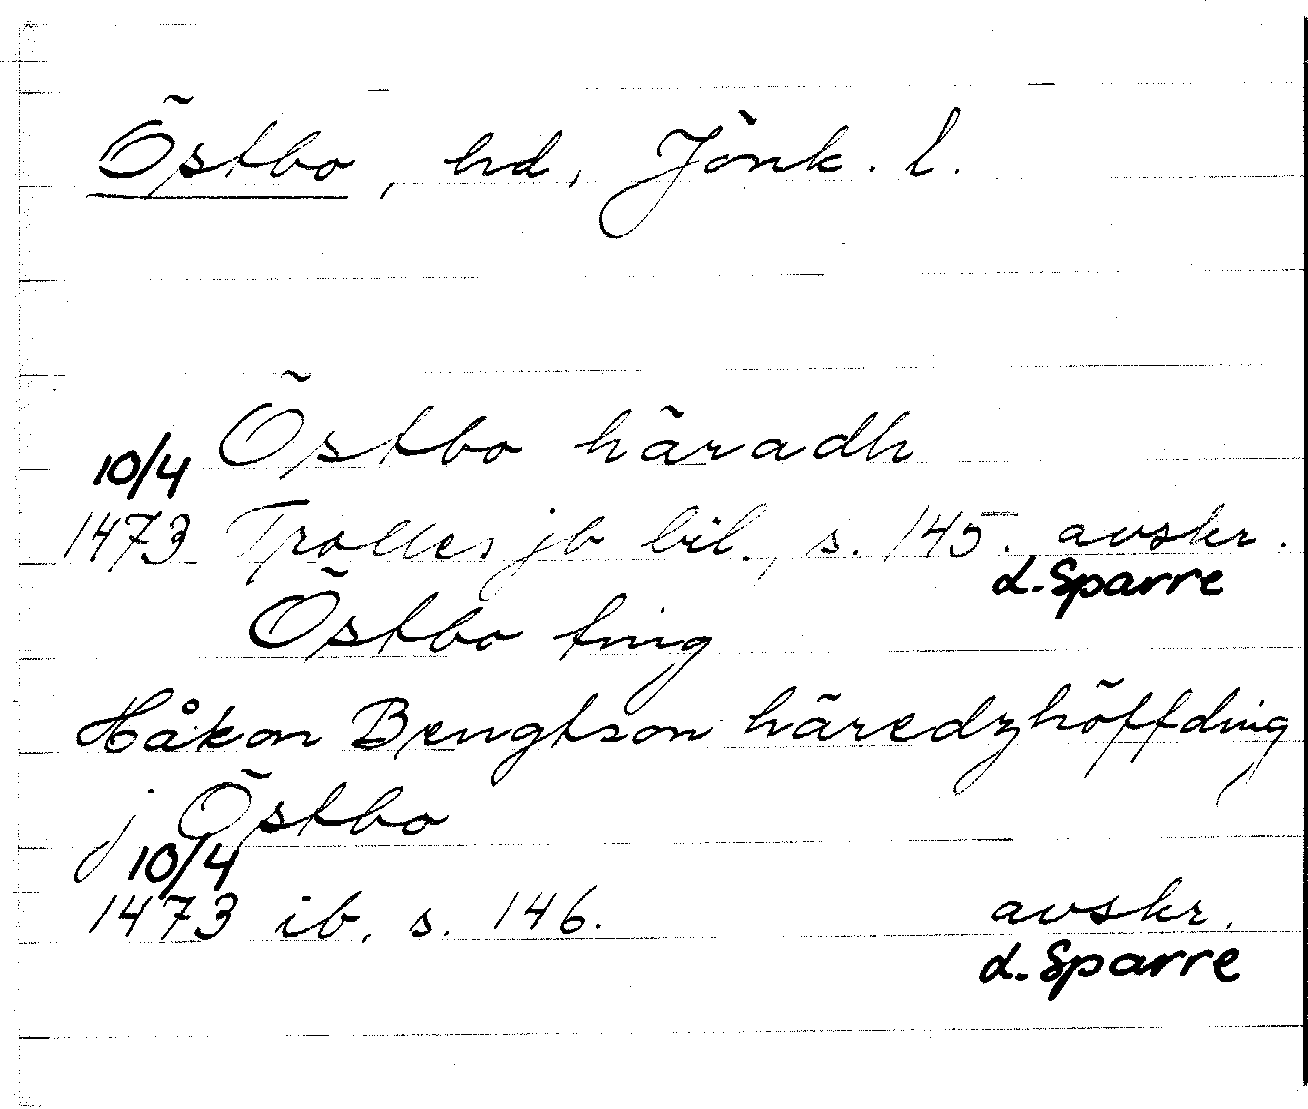 Östbo, hd, Jönk. l.
Östbo häradh
10/4
1473 Trolles jb bil., s. 145. avskr.
L. Sparre
Östbo ting
Håkon Bengtson häredzhöffding
j Östbo
10/4
1473 ib. s. 146. avskr.
L. Sparre